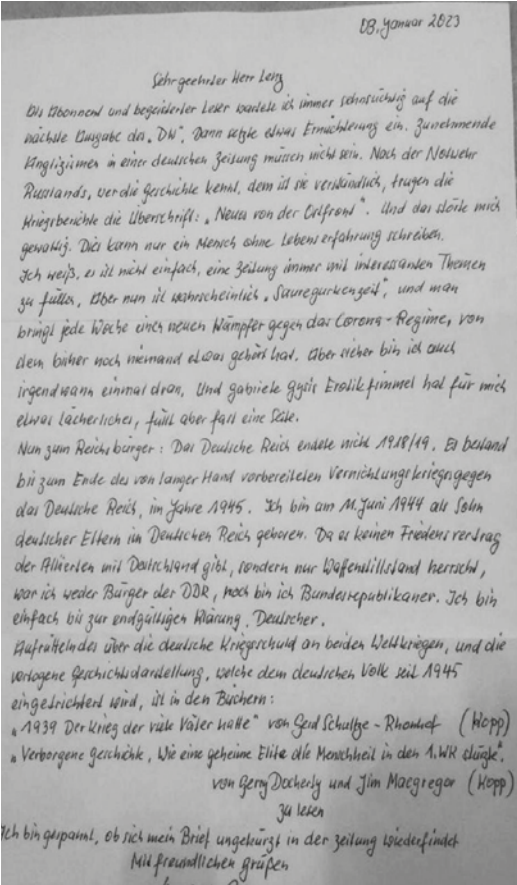 08. Januar 2023
Sehr geehrter Herr Lenz
Als Abonnent und begeisterter Leser wartete ich immer sehnsüchtig auf die
nächste Ausgabe des „DW". Dann setzte etwas Ernüchterung ein. Zunehmende
Anglizismen in einer deutschen Zeitung müssen nicht sein. Nach der Notwehr
Russlands, wer die Geschichte kennt, dem ist sie verständlich, trugen die
Kriegsberichte die Überschrift: „Neues von der Ostfront". Und das störte mich
gewaltig. Dies kann nur ein Mensch ohne Lebenserfahrung schreiben.
Ich weiß, es ist nicht einfach, eine Zeitung immer mit interessanten Themen
zu füllen, Aber nun ist wahrscheinlich „Sauregurkenzeit", und man
bringt jede Woche einen neuen Kämpfer gegen das Corona-Regime, von
dem bisher noch niemand etwas gehört hat. Aber sicher bin ich auch
irgendwann einmal dran. Und Gabriele Gysis Erotikfimmel hat für mich
etwas lächerliches, füllt aber fast eine Seite.
Nun zum Reichsbürger: Das Deutsche Reich endete nicht 1918/19. Es bestand
bis zum Ende des von langer Hand vorbereiteten Vernichtungskrieges gegen
das Deutsche Reich, im Jahre 1945. Ich bin am 11. Juni 1944 als Sohn
deutscher Eltern im Deutschen Reich geboren. Da es keinen Friedensvertrag
der Alliierten mit Deutschland gibt, sondern nur Waffenstillstand herrscht,
war ich weder Bürger der DDR, noch bin ich Bundesrepublikaner. Ich bin
einfach bis zur endgültigen Klärung, Deutscher.
Aufrüttelndes über die deutsche Kriegsschuld an beiden Weltkriegen, und die
verlogene Geschichtsdarstellung, welche dem deutschen Volk seit 1945
eingetrichtert wird, ist in den Büchern:
„1939 Der Krieg der viele Väter hatte" von Gerd Schultze-Rhonhof (Kopp)
„Verborgene Geschichte, Wie eine geheime Elite die Menschheit in den 1.WK stürzte".
von Gerry Docherty und Jim Macgregor (Kopp)
zu lesen
Ich bin gespannt, ob sich mein Brief ungekürzt in der Zeitung wiederfindet
Mit freundlichen Grüßen